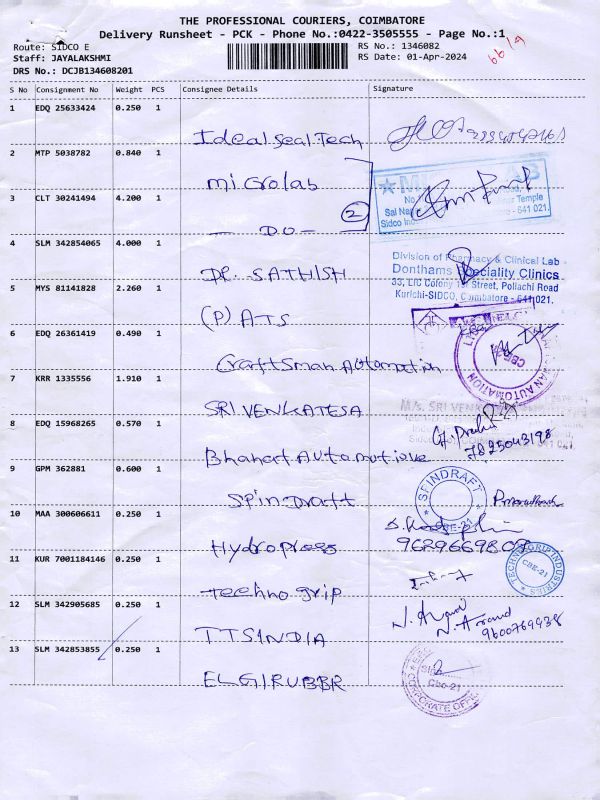 THE PROFESSIONAL COURIERS, COIMBATORE
Delivery Runsheet - PCK - Phone No.:0422-3505555 - Page No.:1
Route: SIDCO E
RS No.: 1346082
66/9
Staff: JAYALAKSHMI
RS Date: 01-Apr-2024
DRS No.: DCJB134608201
S No Consignment No Weight PCS Consignee Details Signature
1 EDQ 25633424 0.250 1
Ideal Seal Tech
2 MTP 5038782 0.840 1
microlab
3 CLT 30241494 4.200 1
2
- DO -
Sidco
641 021.
4 SLM 342854065 4.000 1
DR. SATHISH
Division of Pharmacy & Clinical Lab
Donthams Speciality Clinics
33, LIC Colony 1st Street, Pollachi Road
Kurichi-SIDCO, Coimbatore - 641 021.
5 MYS 81141828 2.260 1
(P) ATS
6 EDQ 26361419 0.490 1
Craftsman Automation
7 KRR 1335556 1.910 1
SRI VENKATESA
M/s. SRI
8 EDQ 15968265 0.570 1
Bharart Automotive
7825043198
9 GPM 362881 0.600 1
Spin Draft
SPINDRAFT
CBE-21
10 MAA 300606611 0.250 1
Hydropress
11 KUR 7001184146 0.250 1
Techno grip
TECHNOGRIP INDUSTRIES
CBE-21
12 SLM 342905685 0.250 1
TTSINDIA
N. Anand
N. Anand
9600769938
13 SLM 342853855 0.250 1
ELGIRUBBR
CORPORATE OFFICE